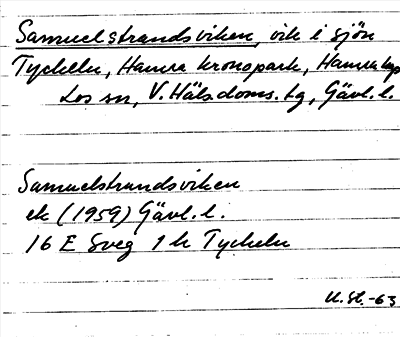 Samuelstrandsviken, vik i sjön
Tyckeln, Hamra kronopark, Hamra kp
Los sn, V. Häls. doms. tg, Gävl. l.
Samuelstrandsviken
ek (1959) Gävl. l.
16 E Sveg 1 h Tyckeln
U. St. -63